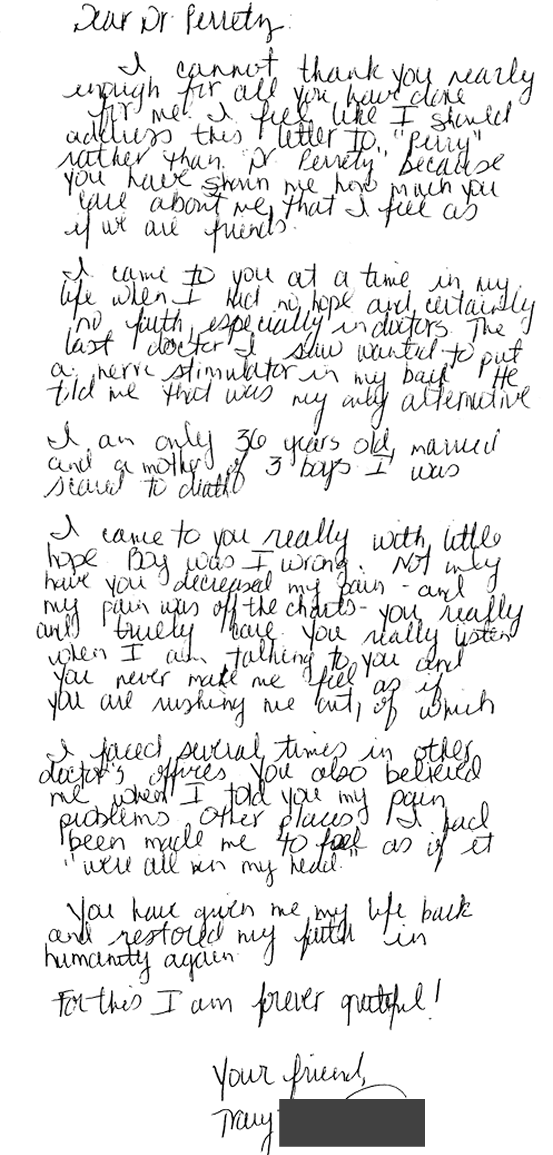 Dear Dr Perrety:
I cannot thank you nearly
enough for all you have done
for me. I feel like I should
address this letter to "Perry"
rather than "Dr Perrety" because
you have shown me how much you
care about me, that I feel as
if we are friends.
I came to you at a time in my
life when I had no hope and certainly
no faith, especially in doctors. The
last doctor I saw wanted to put
a nerve stimulator in my back. He
told me that was my only alternative
I am only 36 years old, married
and a mother of 3 boys I was
scared to death
I came to you really with little
hope Boy was I wrong. Not only
have you decreased my pain - and
my pain was off the charts - you really
and truely care. You really listen
when I am talking to you and
you never make me feel as if
you are rushing me out, of which
I faced several times in other
doctor's offices. You also believed
me when I told you my pain
problems. Other places I had
been made me to feel as if it
"were all in my head."
You have given me my life back
and restored my faith in
humanity again.
For this I am forever grateful!
Your friend,
Tracy